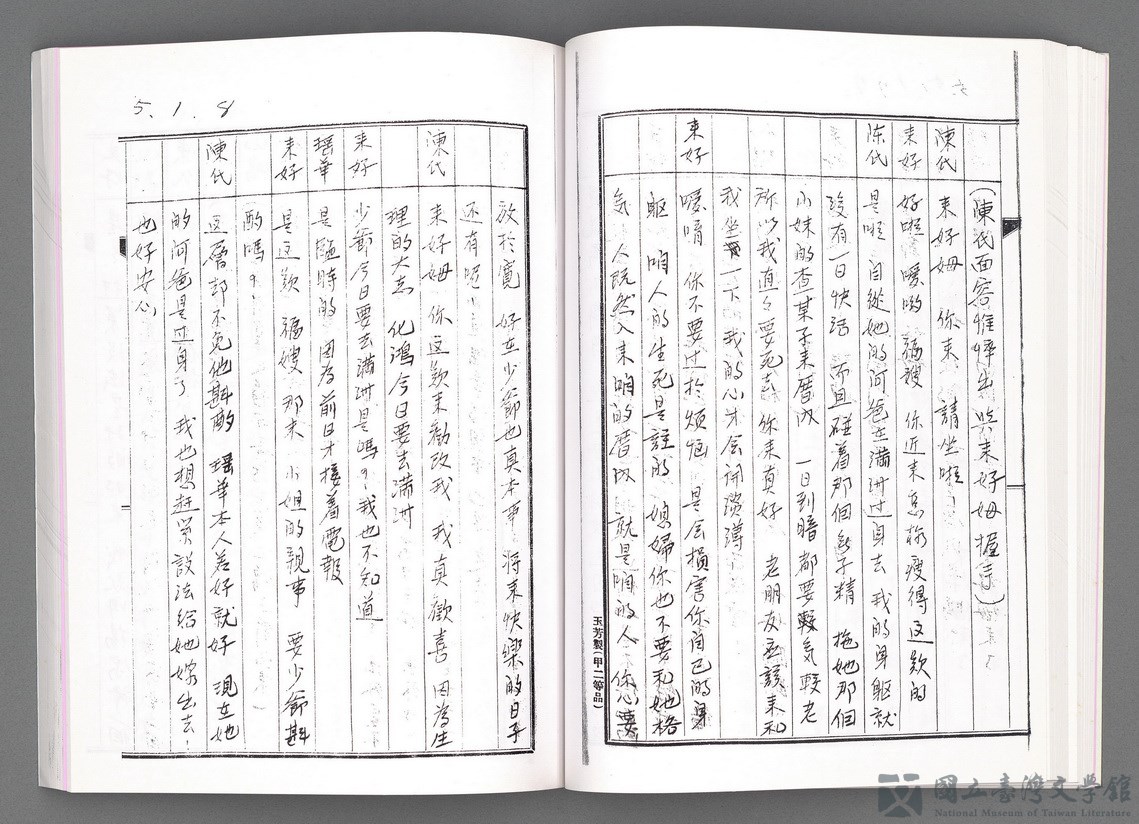 (陳氏面容憔悴出 與來好姆握手)
陳氏 來好姆 你來 請坐啦!
來好 好啦 噯喲 福嫂 你近來怎樣瘦得這款的
陳氏 是啦 自從她的阿爸在滿洲過身去 我的身軀就
沒有一日快活 而且碰着那個 子精 拖她那個
小妹的查某子來厝內 一日到暗都要較氣較老
所以我直々要死去 你來真好 老朋友應該來和
我坐一下 我的心才會開
來好 噯唷 你不要过於煩惱 是会損害你自己的身
軀 咱人的生死是註的 媳婦你也不要和她格
氣 人既然入來咱的厝內 就是咱的人 你心要
玉芳製(甲二等品)
5.1.8
放於寬 好在少爺也真本事 將來快樂的日子
还有啦!
陳氏 來好姆 你這款來勸改我 我真歡喜 因為生
理的大志 化鴻今日要去滿洲
來好 少爺今日要去滿洲是嗎?我也不知道
瑶華 是臨時的 因為前日才接着電報
來好 是这款 福嫂 那末 小姐的親事 要少爺斟
酌嗎?
陳氏 这層都不免他斟酌 瑶華本人若好就好 現在她
的阿爸是过身了 我也想赶 設法給她嫁出去!
也好安心
國立臺灣文學館
National Museum of Taiwan Literature